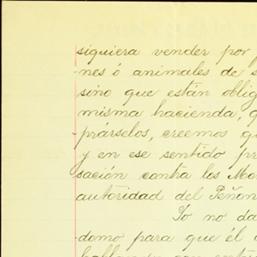 siquiera vender por
nes ó animales de s
sino que están oblig
misma hacienda, q
prárselos, creemos q
y en ese sentido pre
sación contra los Mo
autoridad del Peñon
Yo no da
domo para que él